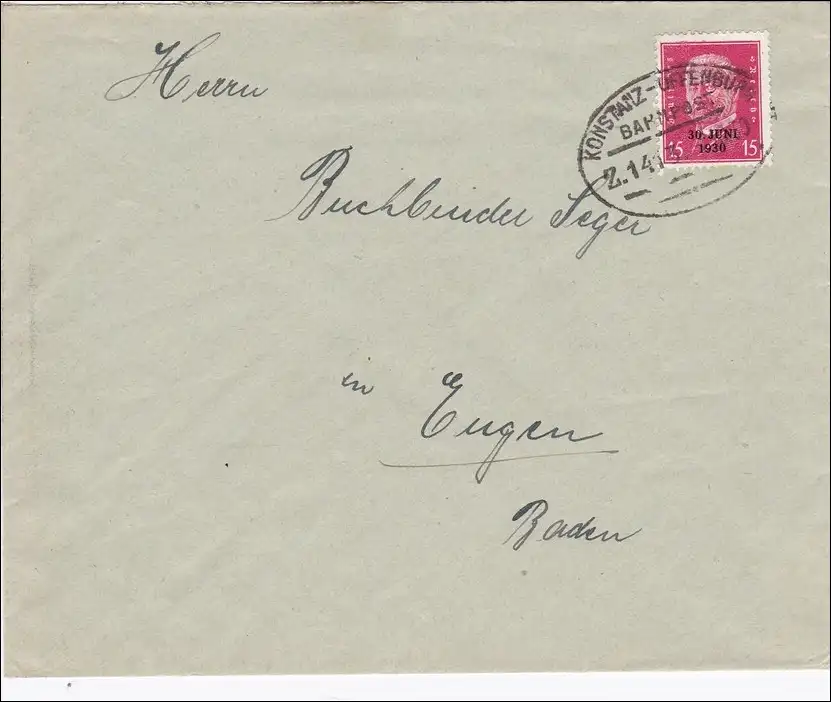 Herrn
KONSTANZ-OFFENBURG
BAHNPOST
30. JUNI
1930
15 15
Z.141
Buchbinder Seger
in Engen
Baden